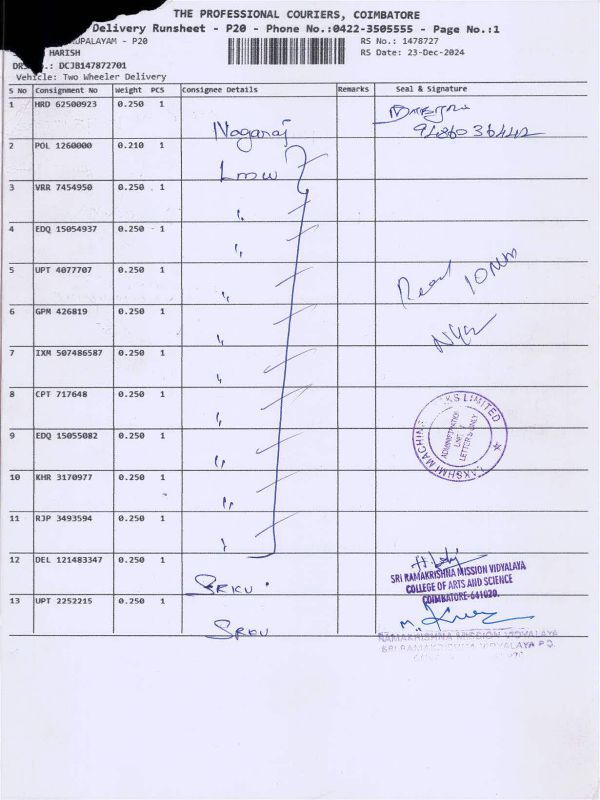 THE PROFESSIONAL COURIERS, COIMBATORE
Delivery Runsheet - P20 - Phone No.:0422-3505555 - Page No.:1
UPALAYAM - P20 RS No.: 1478727
HARISH RS Date: 23-Dec-2024
DR .: DCJB147872701
Vehicle: Two Wheeler Delivery
S No Consignment No Weight PCS Consignee Details Remarks Seal & Signature
1 HRD 62500923 0.250 1 Nagaraj
2 POL 1260000 0.210 1 Lmw
3 VRR 7454950 0.250 1 "
4 EDQ 15054937 0.250 1 "
5 UPT 4077707 0.250 1 " Recd 10 Nos
6 GPM 426819 0.250 1 "
7 IXM 507486587 0.250 1 "
8 CPT 717648 0.250 1 "
9 EDQ 15055082 0.250 1 "
10 KHR 3170977 0.250 1 "
11 RJP 3493594 0.250 1 "
LAKSHMI MACHINE WORKS LIMITED
ADMINISTRATION
UNIT
LETTERS ONLY
12 DEL 121483347 0.250 1 SRKV
SRI RAMAKRISHNA MISSION VIDYALAYA
COLLEGE OF ARTS AND SCIENCE
COIMBATORE-641020.
13 UPT 2252215 0.250 1 SRKV
RAMAKRISHNA MISSION VIDYALAYA
SRI RAMAKRISHNA VIDYALAYA P.O.